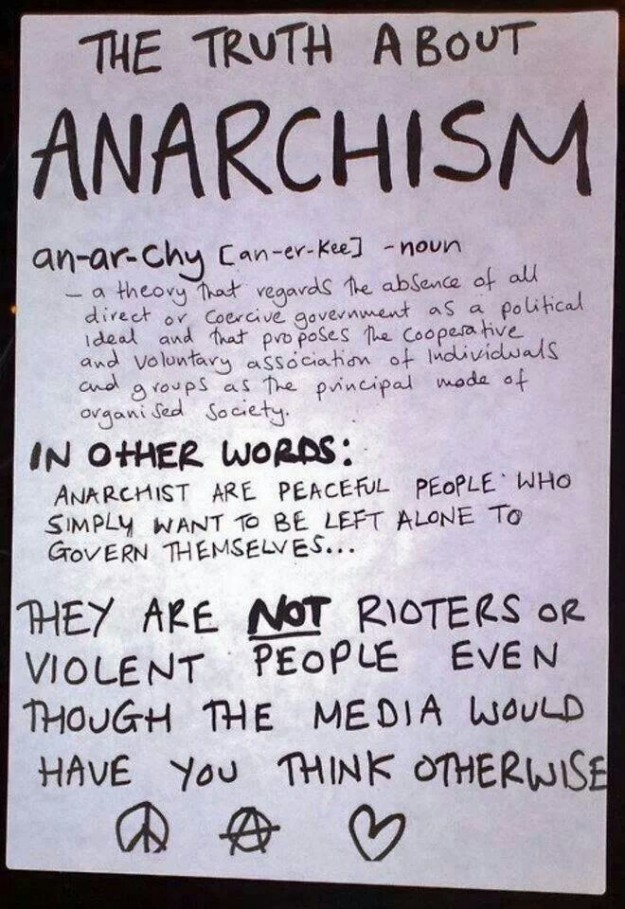 THE TRUTH ABOUT
ANARCHISM
an-ar-chy [an-er-kee] - noun
- a theory that regards the absence of all
direct or coercive government as a political
ideal and that proposes the cooperative
and voluntary association of individuals
and groups as the principal mode of
organised society.
IN OTHER WORDS:
ANARCHIST ARE PEACEFUL PEOPLE WHO
SIMPLY WANT TO BE LEFT ALONE TO
GOVERN THEMSELVES...
THEY ARE NOT RIOTERS OR
VIOLENT PEOPLE EVEN
THOUGH THE MEDIA WOULD
HAVE YOU THINK OTHERWISE